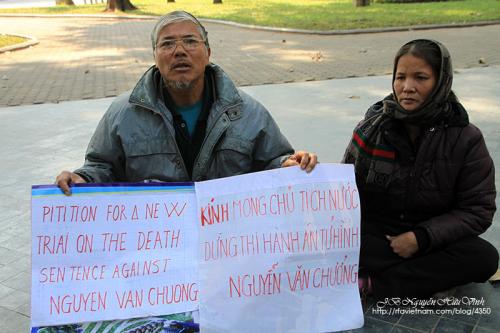 PITITION FOR A NEW
TRIAI ON THE DEATH
SENTENCE AGAINST
NGUYEN VAN CHUONG
KÍNH MONG CHỦ TỊCH NƯỚC
DỪNG THI HÀNH ÁN TỬ HÌNH
NGUYỄN VĂN CHƯỞNG
JB Nguyễn Hữu Vinh
http://rfavietnam.com/blog/4350